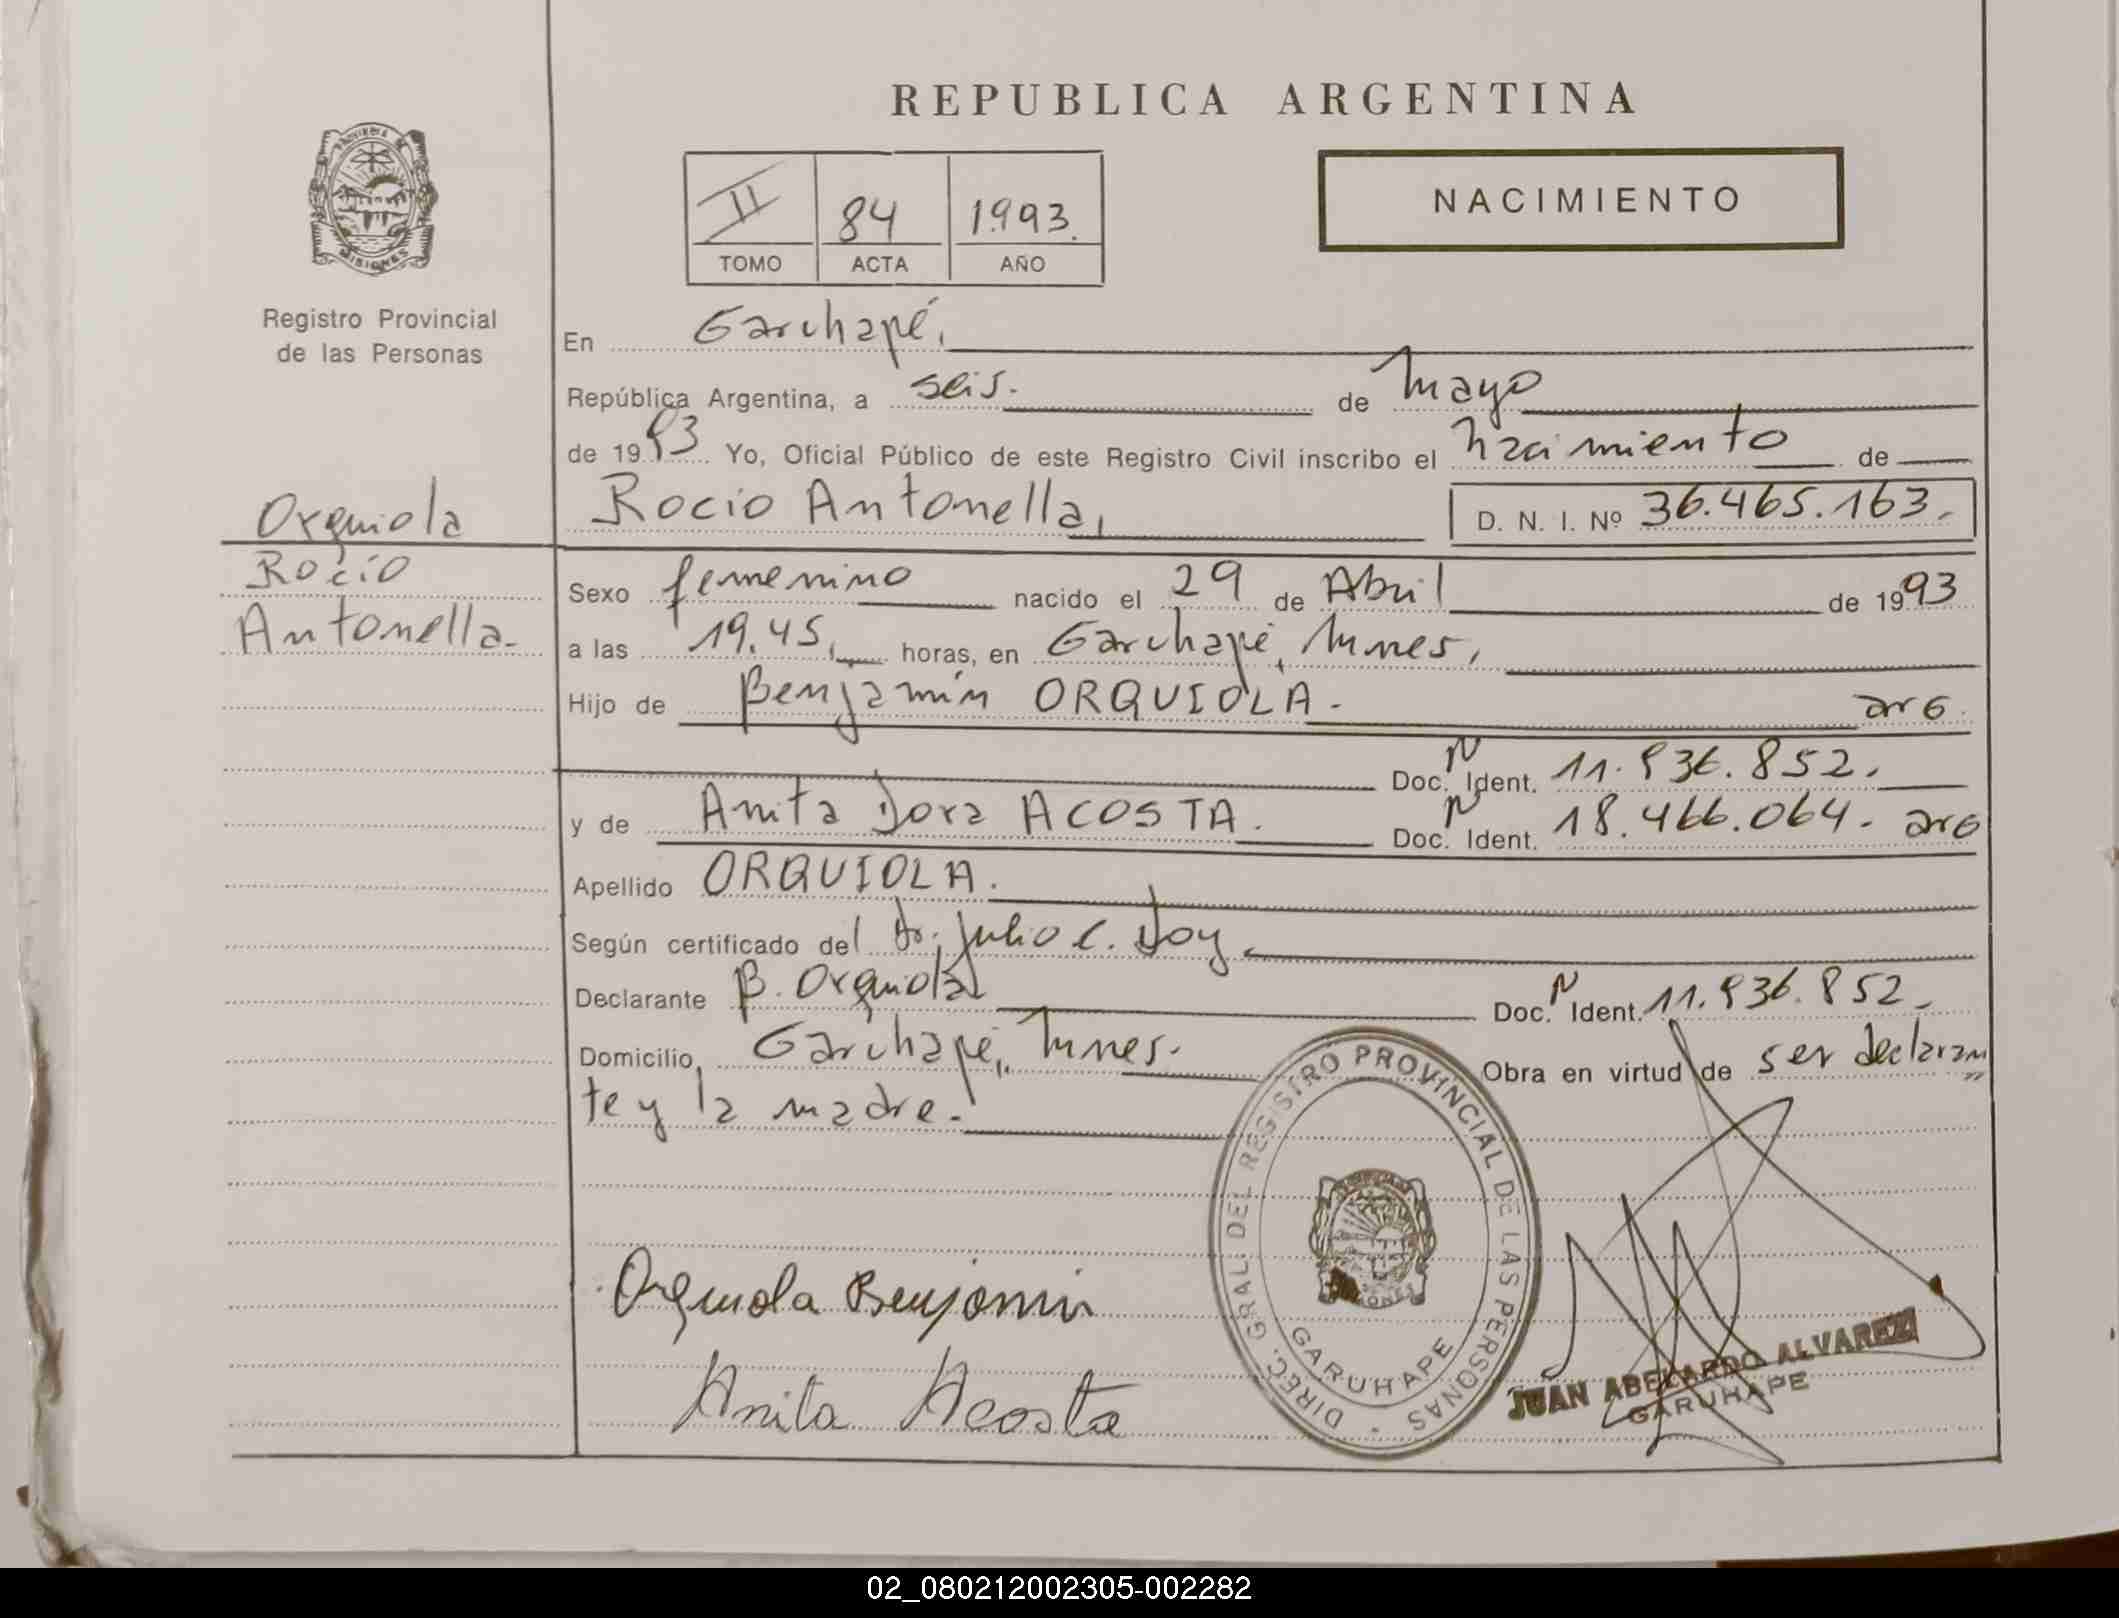 REPUBLICA ARGENTINA
PROVINCIA DE
MISIONES
Registro Provincial
de las Personas
II 84 1993.
TOMO ACTA AÑO
NACIMIENTO
En Garuhapé,
República Argentina, a seis. de Mayo
de 1993 Yo, Oficial Público de este Registro Civil inscribo el nacimiento de
Rocio Antonella, D. N. I. Nº 36.465.163.
Orquiola
Rocío
Antonella.
Sexo femenino nacido el 29 de Abril de 1993
a las 19.45, horas, en Garuhapé, Mnes,
Hijo de Benjamín ORQUIOLA. arg.
Doc. N Ident. 11.936.852.
y de Anita Dora ACOSTA. Doc. N Ident. 18.466.064. arg
Apellido ORQUIOLA.
Según certificado del Dr. Julio C. Doy.
Declarante B. Orquiola Doc. N Ident. 11.936.852.
Domicilio, Garuhapé, Mnes. Obra en virtud de ser declaran
te y la madre.
Orquiola Benjamin
Anita Acosta
DIREC. GRAL. DEL REGISTRO PROVINCIAL DE LAS PERSONAS
GARUHAPE
JUAN ABELARDO ALVAREZ
GARUHAPE
02_080212002305-002282